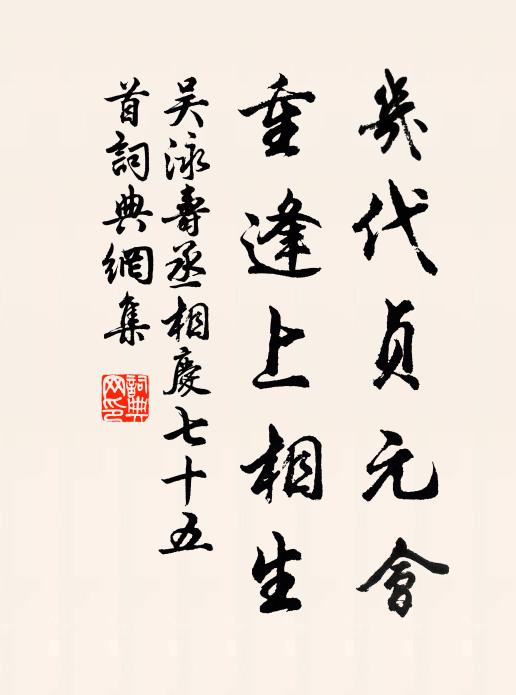 幾代貞元會
重逢上相生
吴泳壽丞相慶七十五
首詞典網集
詞典網印